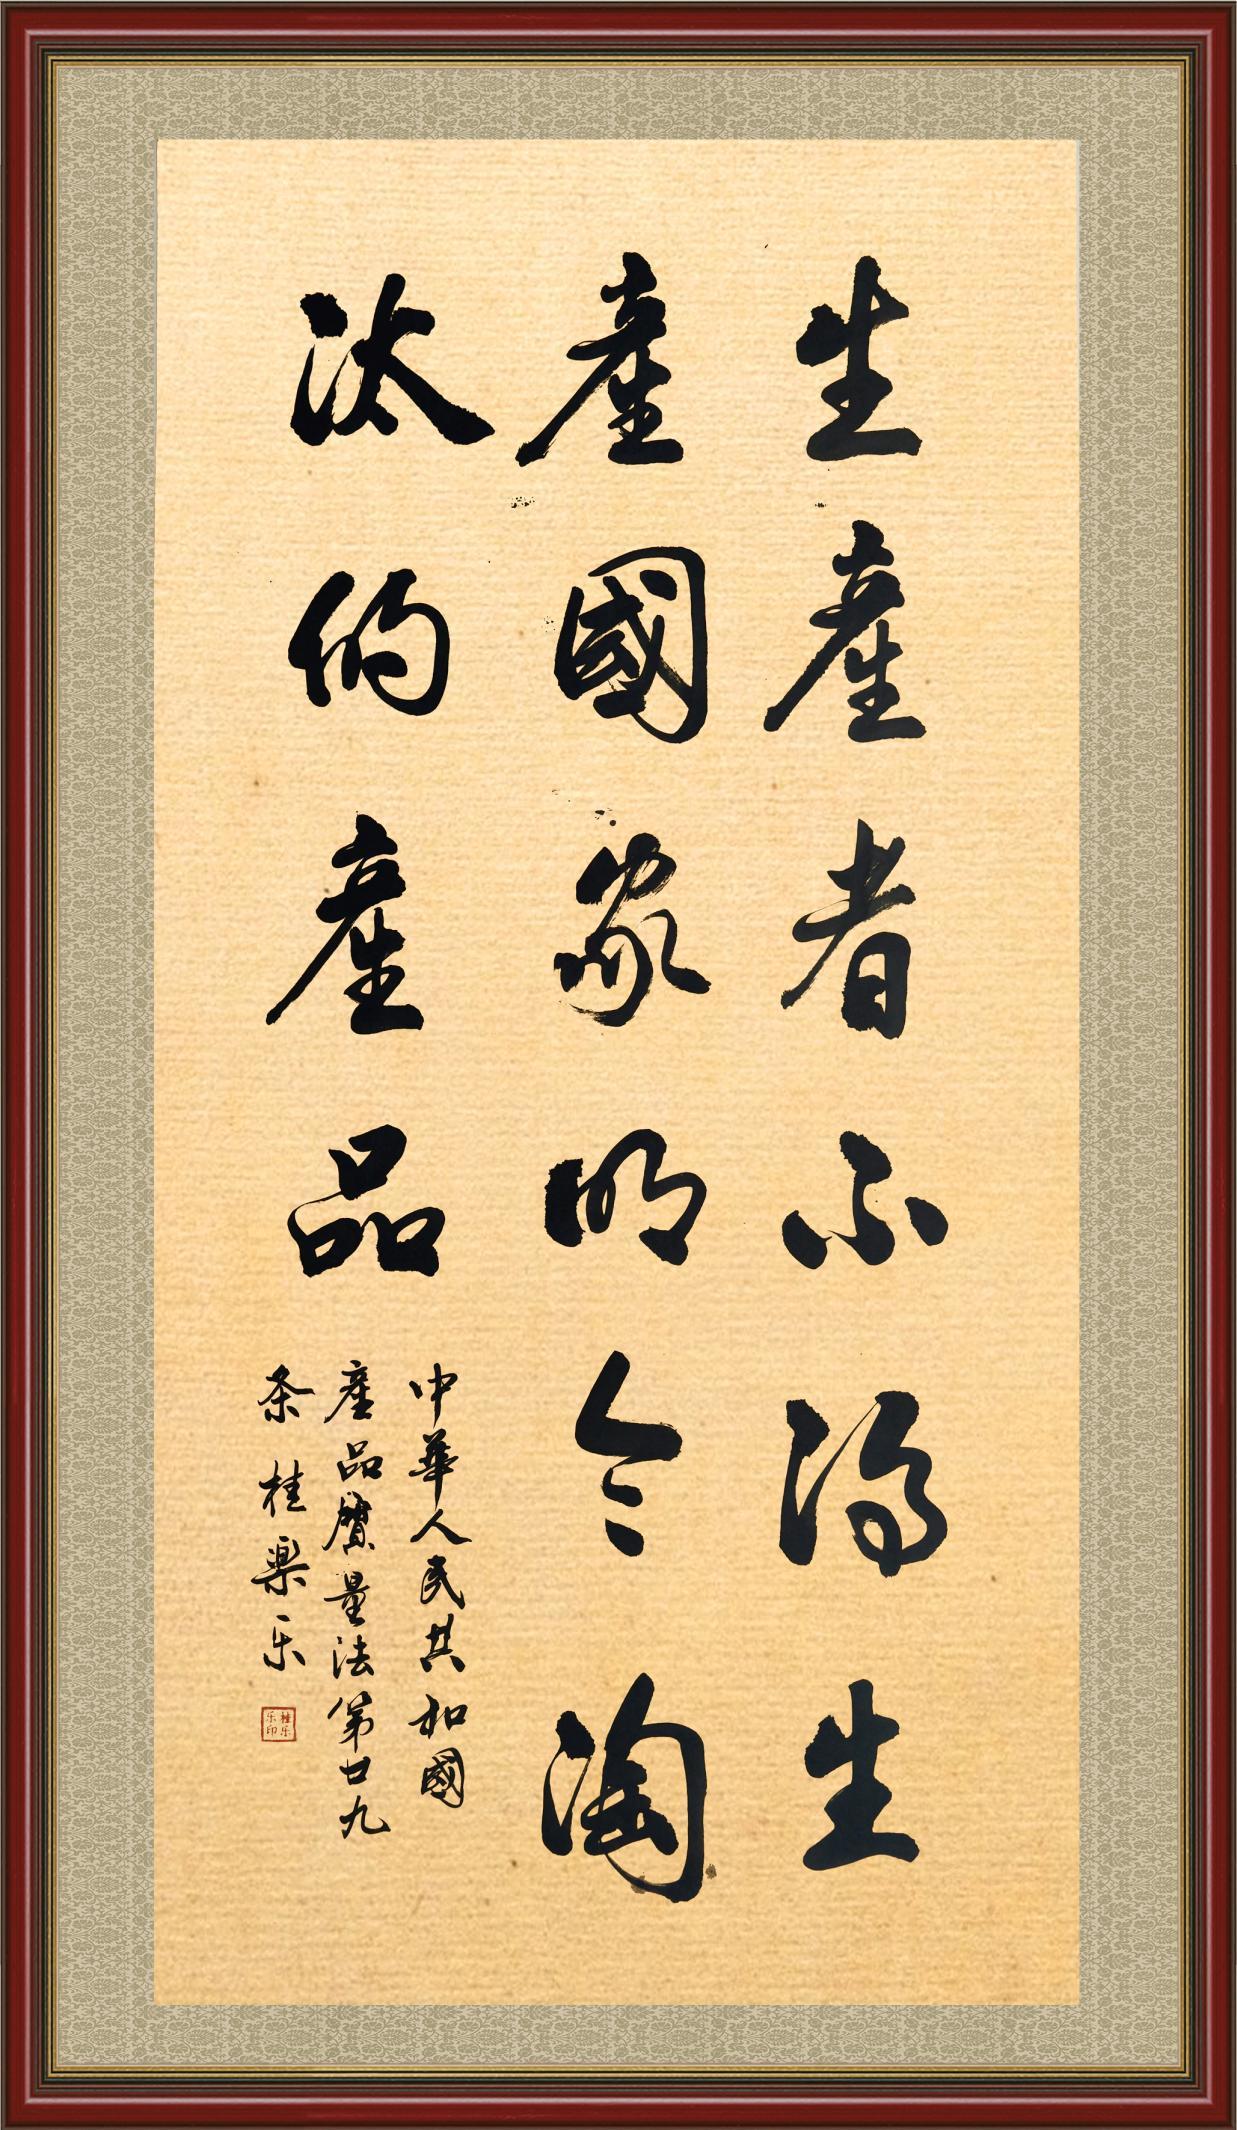 生產者不得生
產國家明令淘
汰的產品
中華人民共和國
產品質量法第廿九
条 桂樂乐
桂乐
乐印